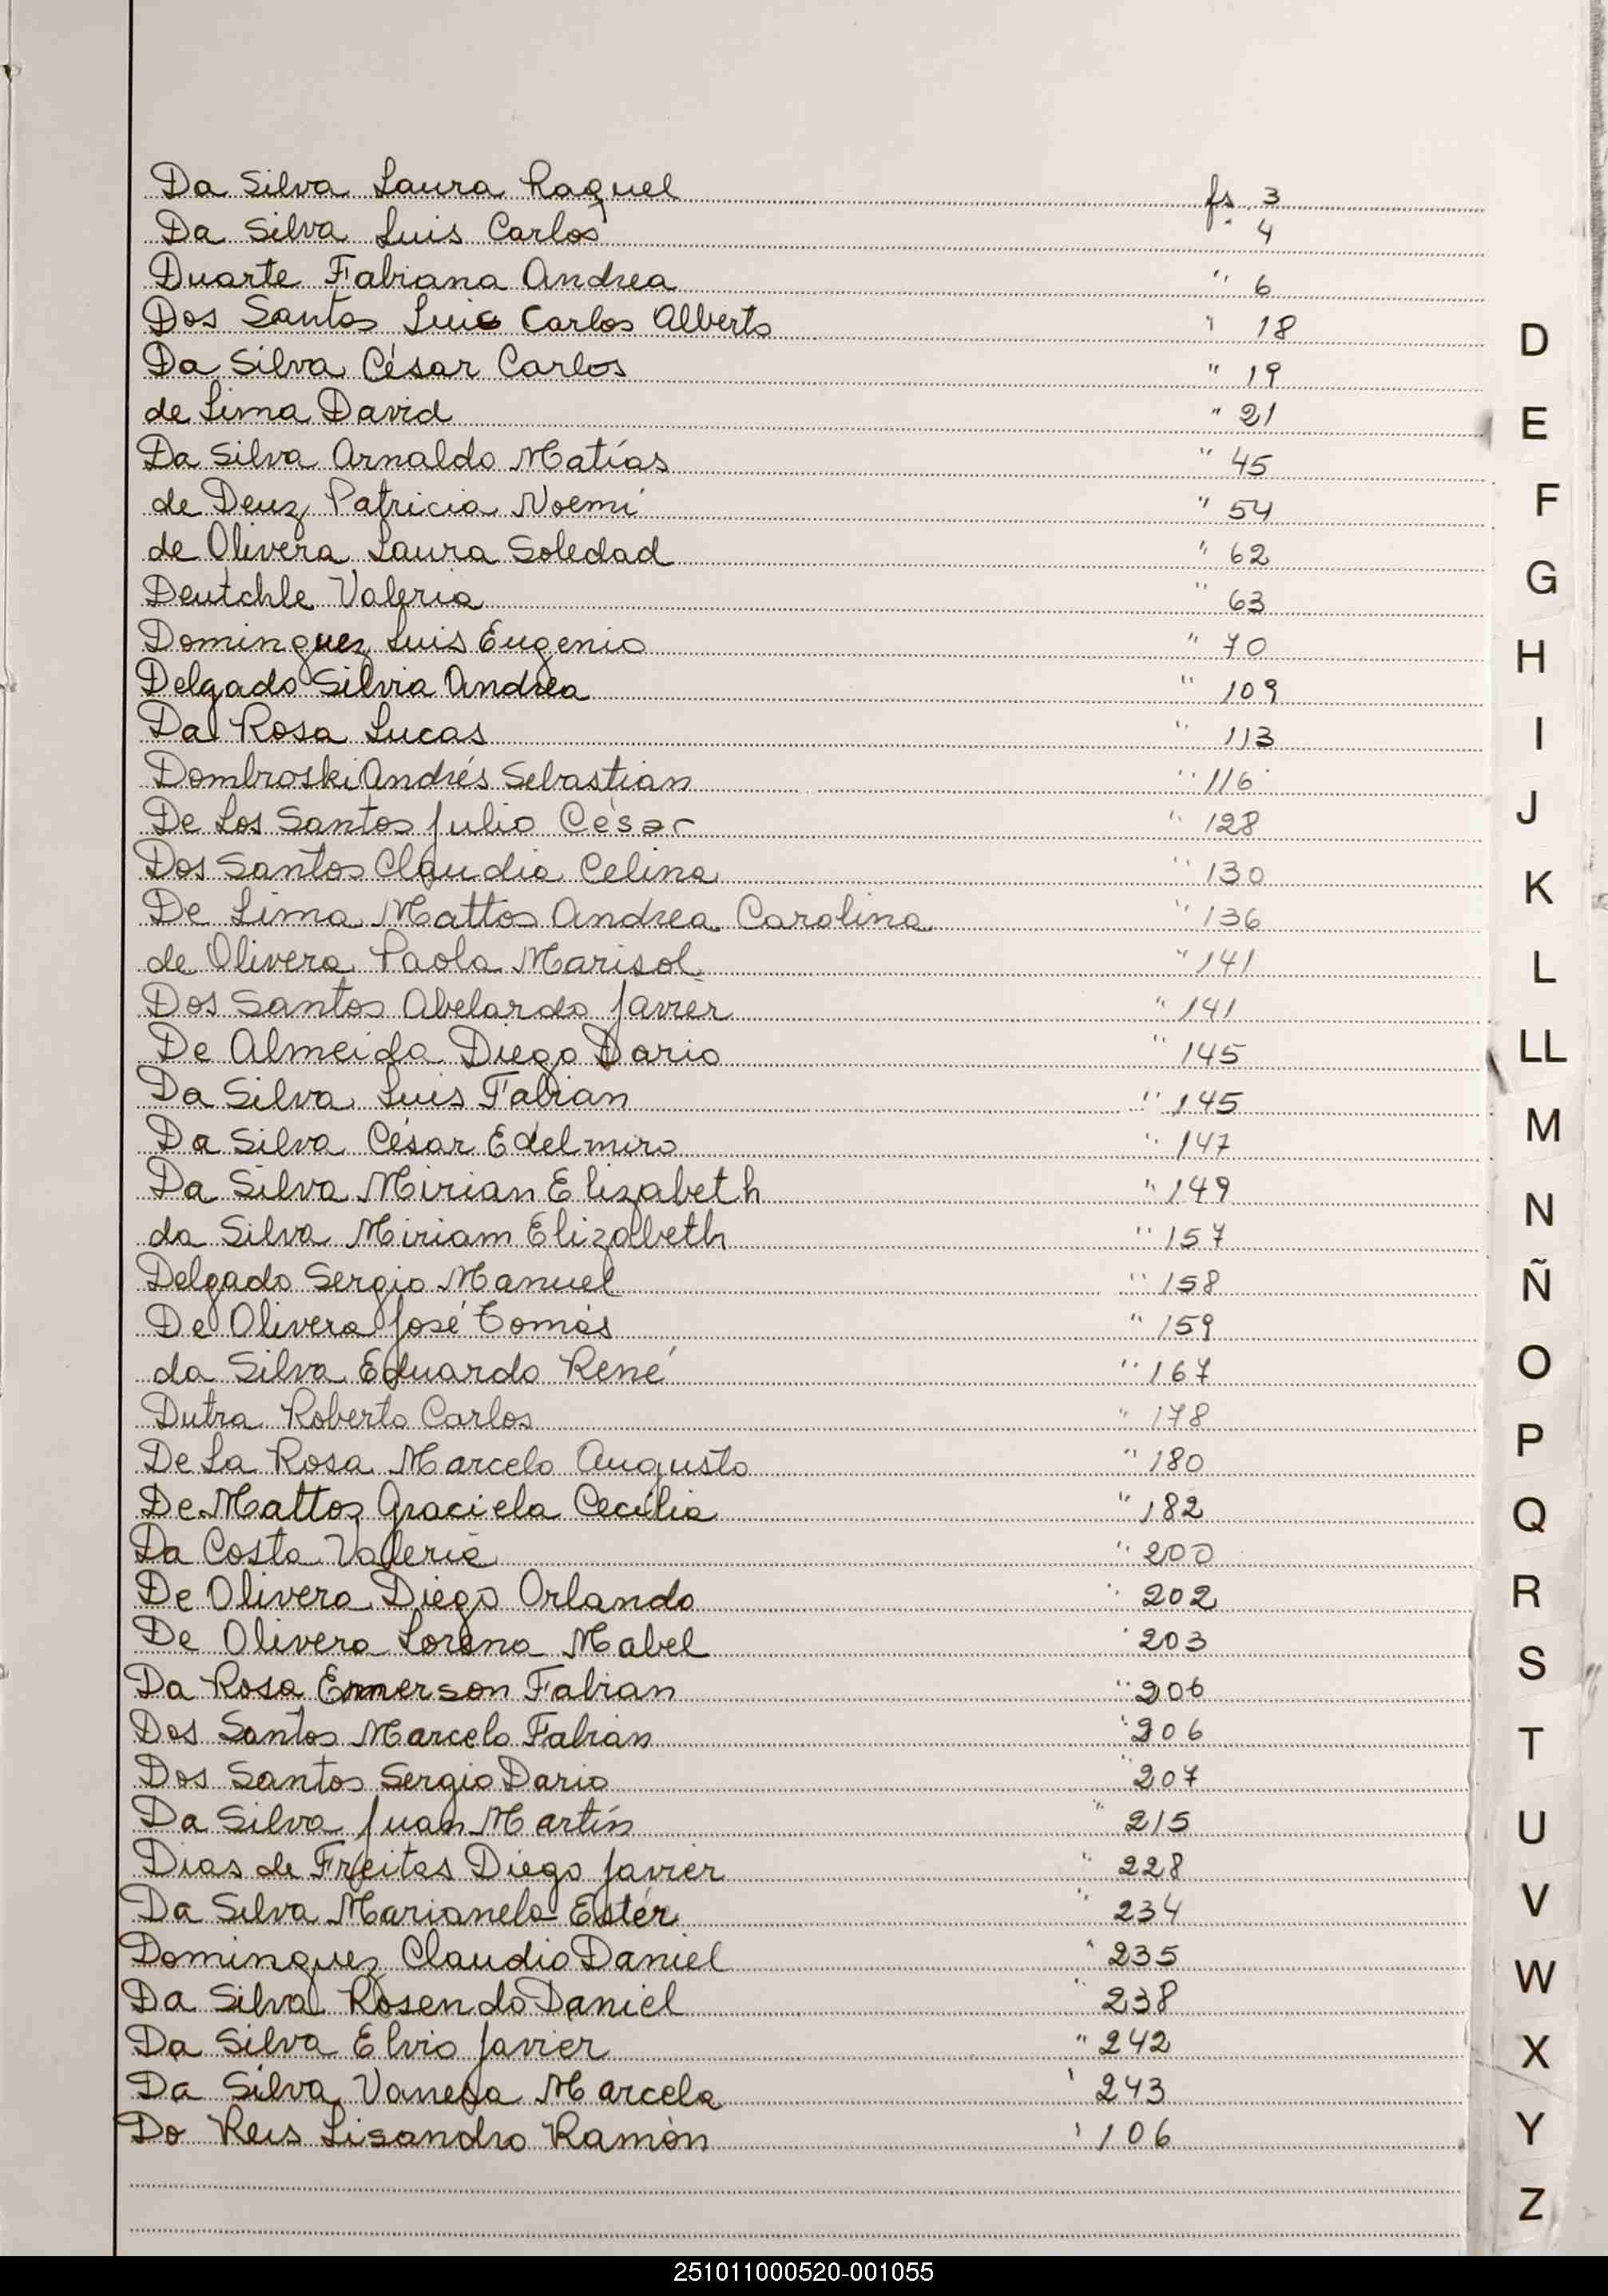 Da Silva Laura Raquel fs. 3
Da Silva Luis Carlos " 4
Duarte Fabiana Andrea " 6
Dos Santos Luis Carlos Alberto " 18
Da Silva César Carlos " 19
de Lima David " 21
Da Silva Arnaldo Matías " 45
de Deuz Patricia Noemí " 54
de Olivera Laura Soledad " 62
Deutchle Valeria " 63
Dominguez Luis Eugenio " 70
Delgado Silvia Andrea " 109
Da Rosa Lucas " 113
Dombroski Andrés Sebastian " 116
De Los Santos Julio César " 128
Dos Santos Claudia Celina " 130
De Lima Mattos Andrea Carolina " 136
de Olivera Paola Marisol " 141
Dos Santos Abelardo Javier " 141
De Almeida Diego Dario " 145
Da Silva Luis Fabian " 145
Da Silva César Edelmiro " 147
Da Silva Mirian Elizabeth " 149
da Silva Miriam Elizabeth " 157
Delgado Sergio Manuel " 158
De Olivera José Tomás " 159
da Silva Eduardo René " 167
Dutra Roberto Carlos " 178
De La Rosa Marcelo Augusto " 180
De Mattos Graciela Cecilia " 182
Da Costa Valeria " 200
De Olivera Diego Orlando " 202
De Olivera Lorena Mabel " 203
Da Rosa Emerson Fabian " 206
Dos Santos Marcelo Fabián " 206
Dos Santos Sergio Dario " 207
Da Silva Juan Martín " 215
Dias de Freitas Diego Javier " 228
Da Silva Marianela Ester " 234
Dominguez Claudio Daniel " 235
Da Silva Rosendo Daniel " 238
Da Silva Elvio Javier " 242
Da Silva Vanesa Marcela " 243
Do Reis Lisandro Ramón " 106
D
E
F
G
H
I
J
K
L
LL
M
N
Ñ
O
P
Q
R
S
T
U
V
W
X
Y
Z
251011000520-001055